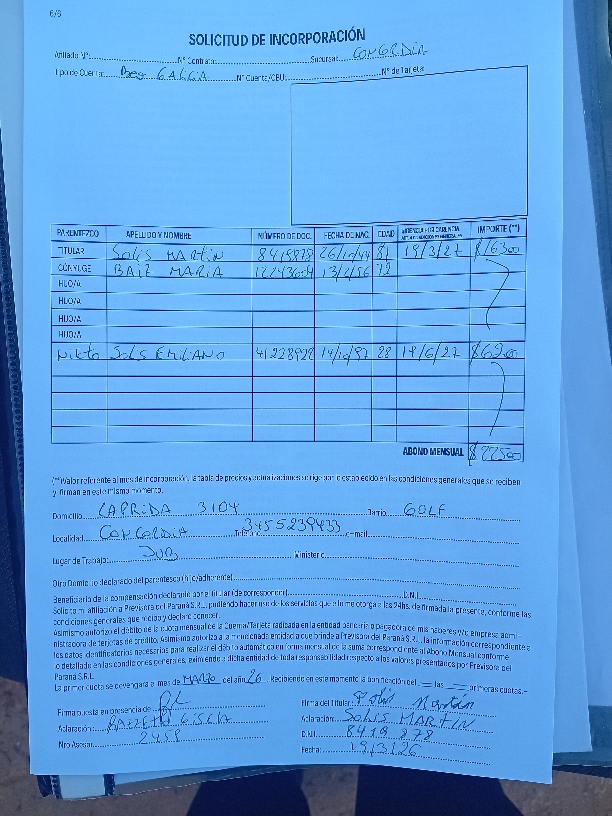 6/6
SOLICITUD DE INCORPORACIÓN
Afiliado Nº: Nº Contrato: Sucursal: CONCORDIA
Tipo de Cuenta: Nº Cuenta/CBU: Nº de Tarjeta:
PARENTEZCO APELLIDO Y NOMBRE NÚMERO DE DOC. FECHA DE NAC. EDAD IMPORTE (**)
TITULAR SOLIS MARTIN 8419878 26/10/44 81 19/3/27 $16300
CÓNYUGE MARIA
HIJO/A
HIJO/A
HIJO/A
HIJO/A
Nieto SOLIS EMILIANO 41228928 14/10/97 28 19/6/27 $6200
ABONO MENSUAL $22500
(**)Valor referente al mes de incorporación, la tabla de precios y actualizaciones se rige por lo establecido en las condiciones generales que se reciben
y firman en este mismo momento.
Domicilio LAPRIDA 3104 Barrio GOLF
Localidad CONCORDIA Teléfono 3455239433 e-mail
Lugar de Trabajo: JUB Ministerio:
Otro Domicilio declarado del parentesco (hijo/adherente)
Beneficiario de la compensación declarado por el titular (de corresponder) D.N.I.
Solicito mi afiliación a Previsora del Paraná S.R.L. pudiendo hacer uso de los servicios que ello me otorga a las 24hs. de firmada la presente, conforme las
condiciones generales que recibo y declaro conocer.
Asimismo autorizo el débito de la cuota mensual de la Cuenta/Tarjeta radicada en la entidad bancaria o pagadora de mis haberes y/o empresa admi
nistradora de tarjetas de crédito. Asimismo autorizo a la mencionada entidad a que brinde a Previsora del Paraná S.R.L., la información correspondiente a
los datos identificatorios necesarios para realizar el débito automático en forma mensual de la suma correspondiente al Abono Mensual conforme
lo detallado en las condiciones generales, eximiendo a dicha entidad de toda responsabilidad respecto a los valores presentados por Previsora del
Paraná S.R.L.
La primer cuota se devengará el mes de MARZO del año 26. Recibiendo en este momento la bonificación del las primeras cuotas.-
Firma puesta en presencia de Firma del Titular: Solis Martín
Aclaración: Aclaración: SOLIS MARTIN
Nro Asesor: 2458 D.N.I. 8419878
Fecha: 19/3/26